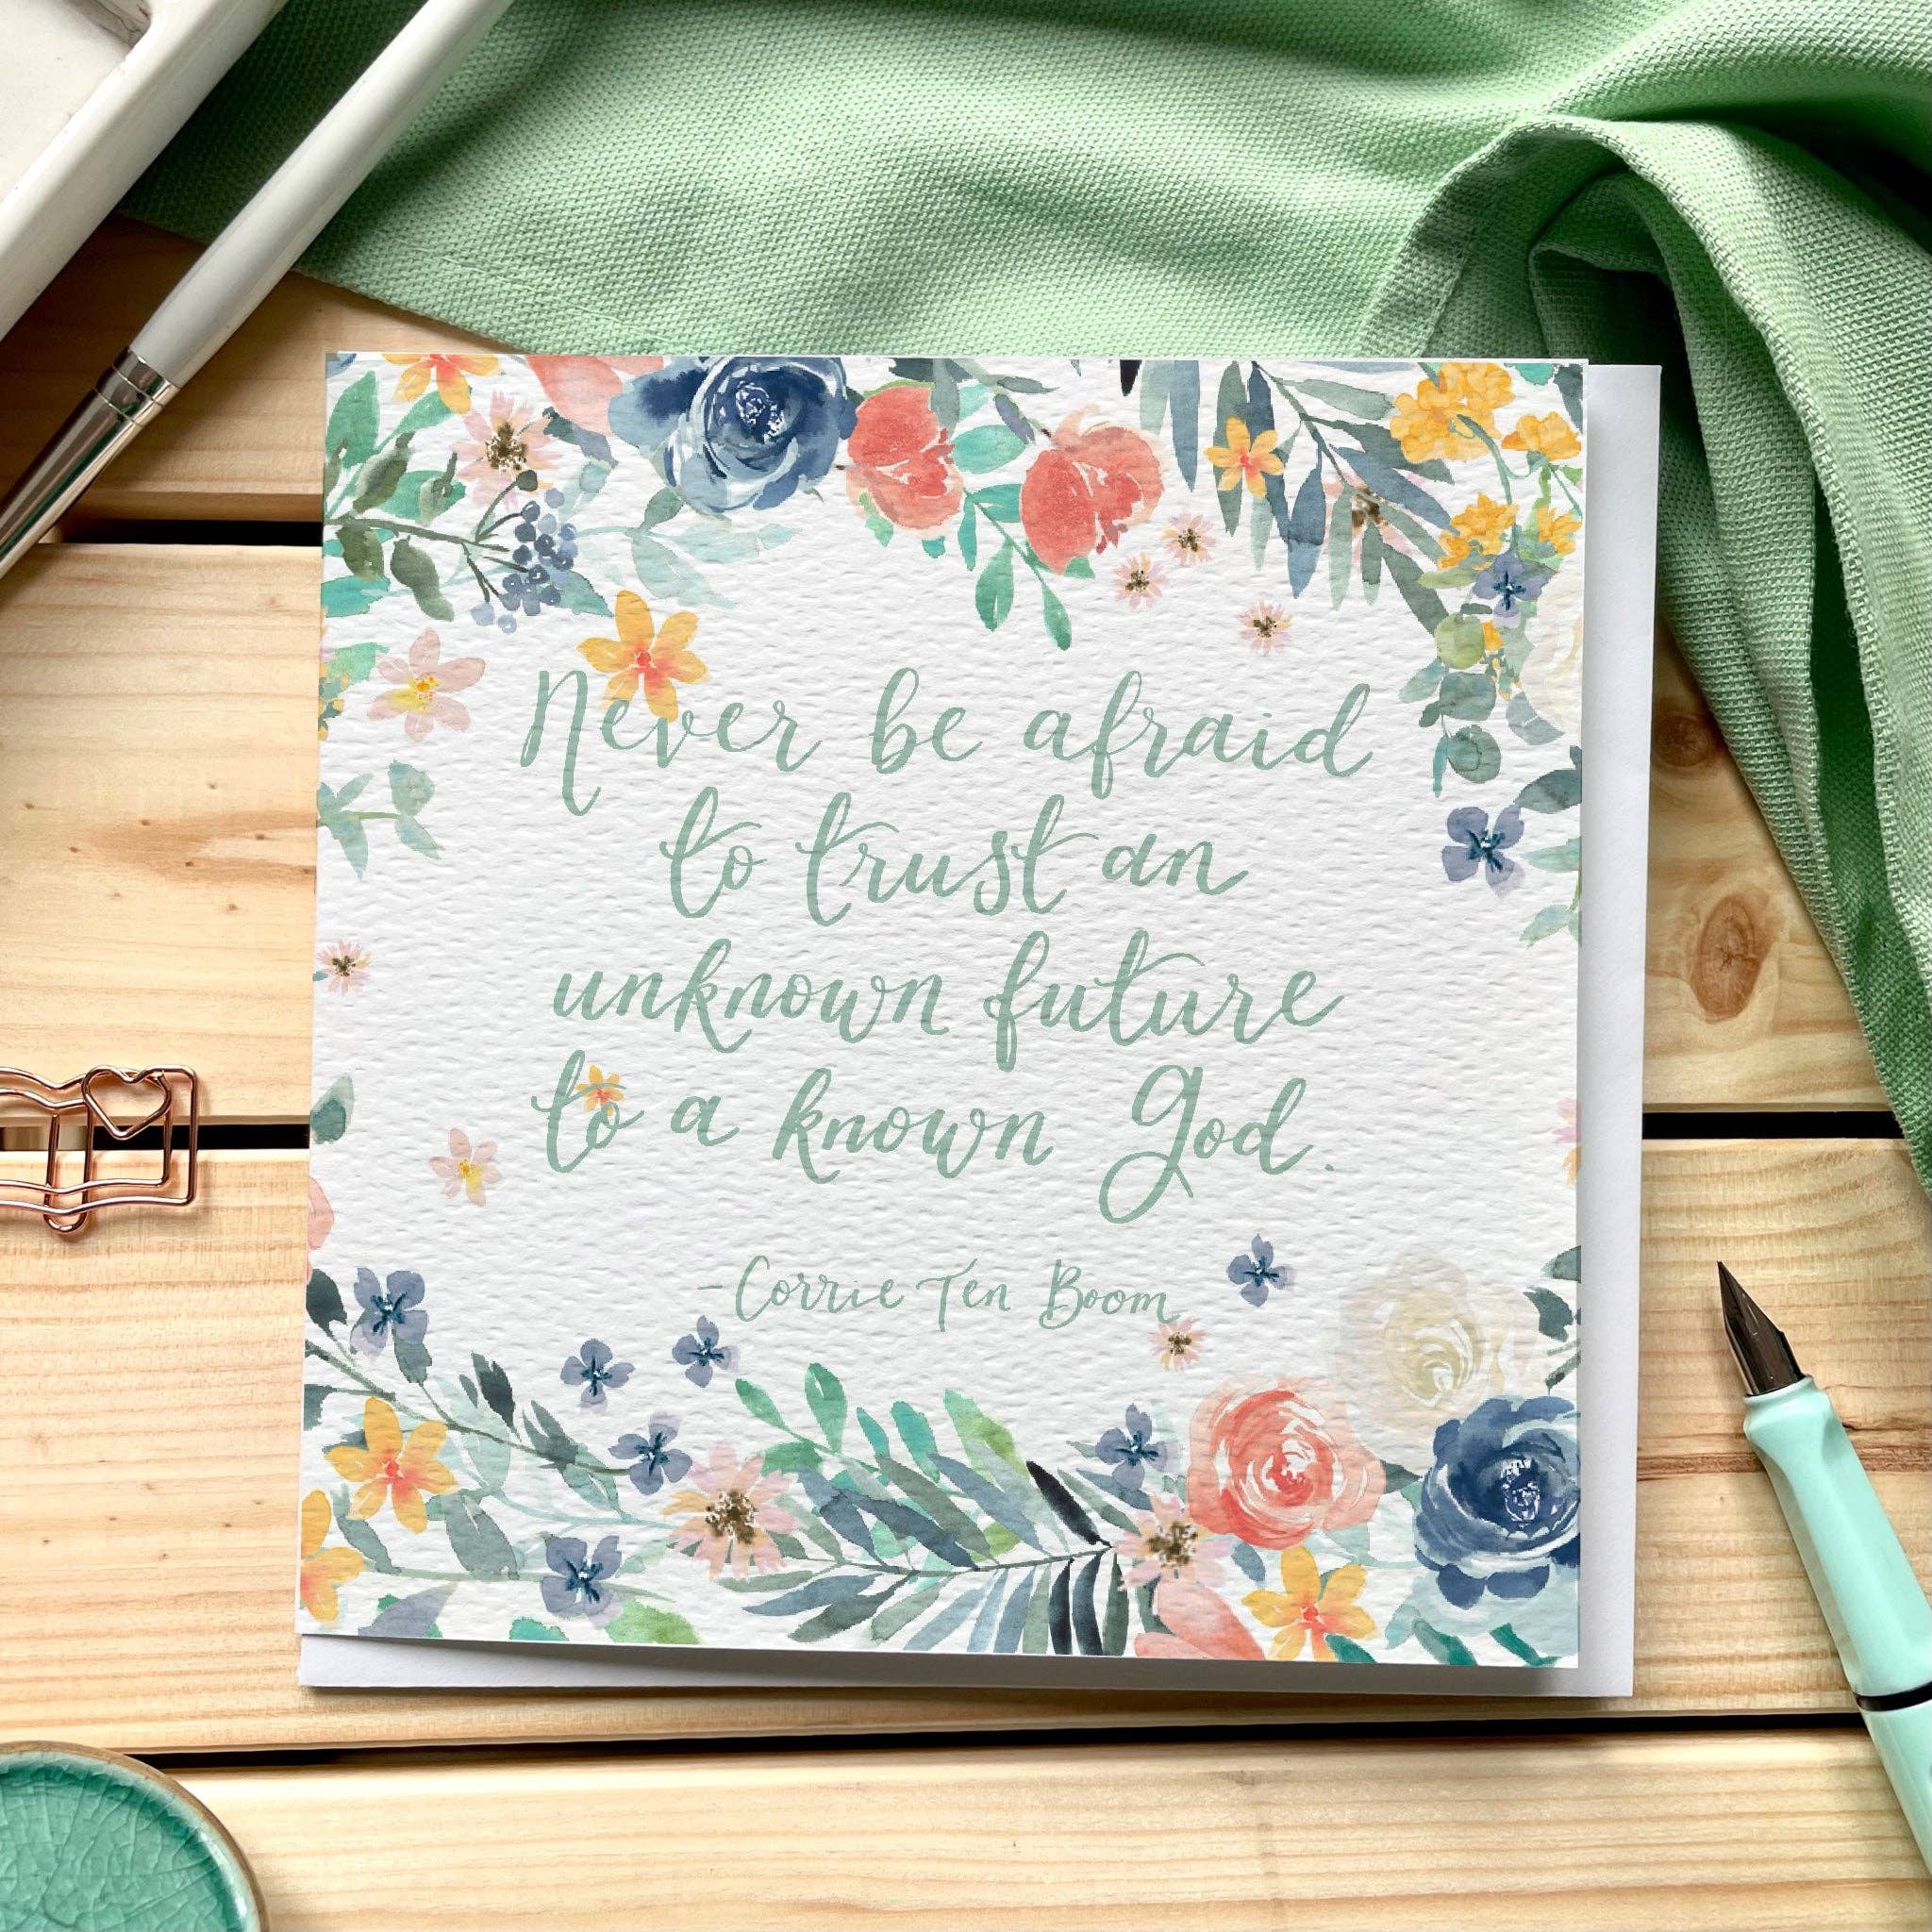 Never be afraid
to trust an
unknown future
to a known God.
-Corrie Ten Boom